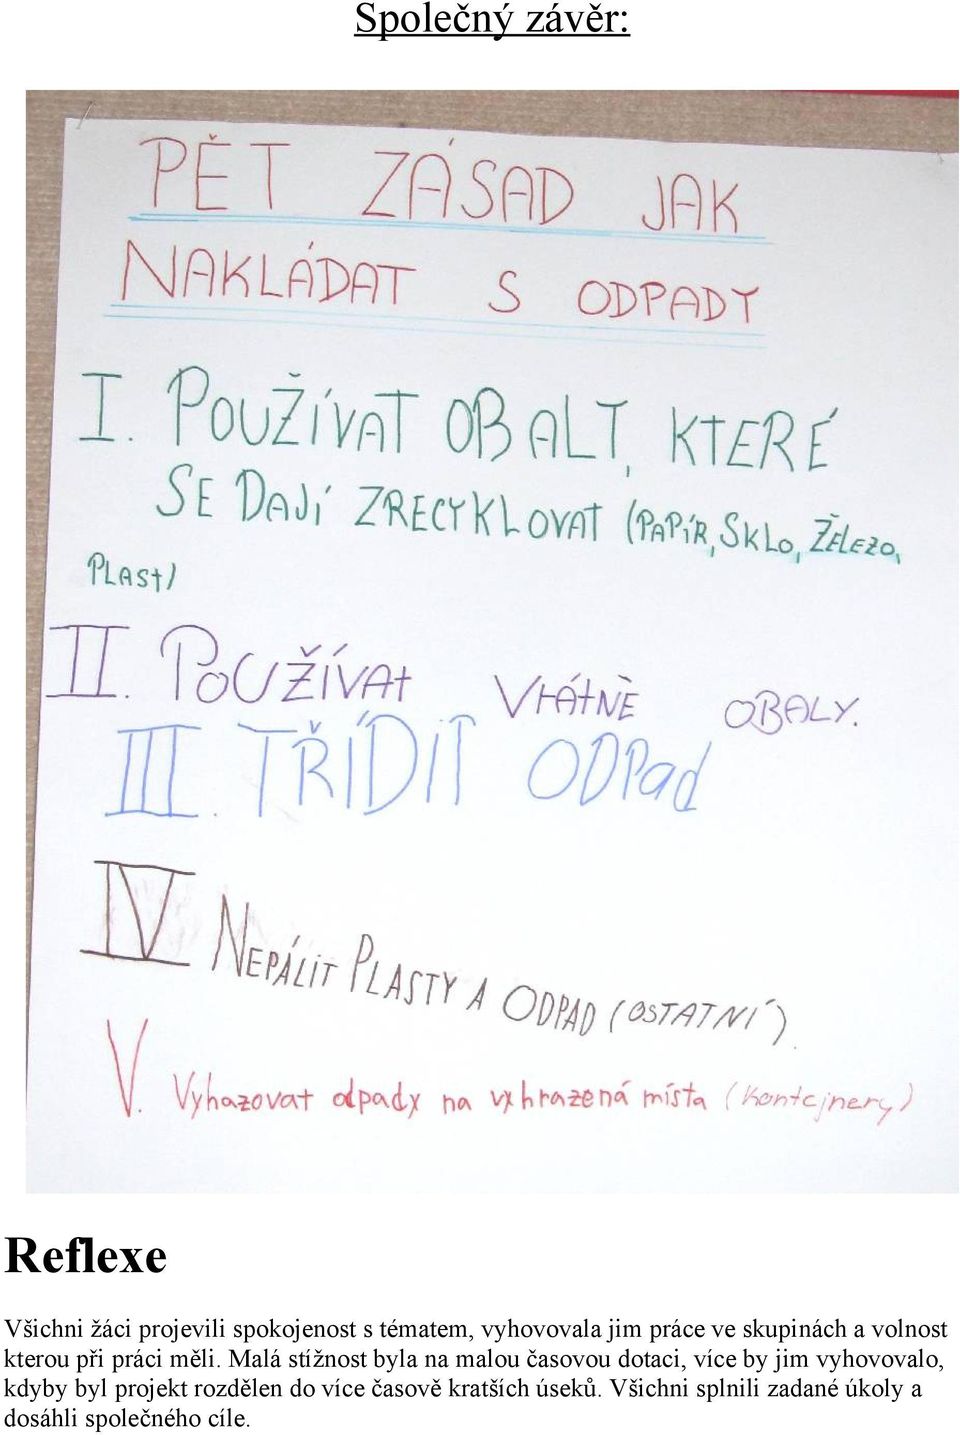 Společný závěr:
PĚT ZÁSAD JAK
NAKLÁDAT S ODPADY
I. POUŽÍVAT OBALY, KTERÉ
SE DAJÍ ZRECYKLOVAT (PAPÍR, SKLO, ŽELEZO,
PLAST)
II. POUŽÍVAT VRÁTNÉ OBALY.
III. TŘÍDIT ODPad
IV NEPÁLIT PLASTY A ODPAD (OSTATNÍ).
V. Vyhazovat odpady na vyhrazená místa (kontejnery)
Reflexe
Všichni žáci projevili spokojenost s tématem, vyhovovala jim práce ve skupinách a volnost
kterou při práci měli. Malá stížnost byla na malou časovou dotaci, více by jim vyhovovalo,
kdyby byl projekt rozdělen do více časově kratších úseků. Všichni splnili zadané úkoly a
dosáhli společného cíle.